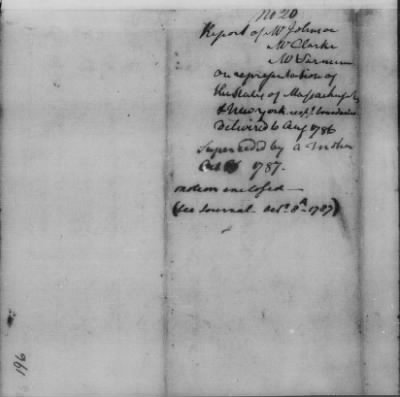 No 20
Report of Mr Johnson
Mr Clarke
Mr Varnum
on representation of
the States of Massachusetts
& New York resp.g boundaries
Delivered 6 Aug 1786
Superseded by a motion
Oct 1787.
motion enclosed—
(See Journal Oct.r 8th 1787)
196